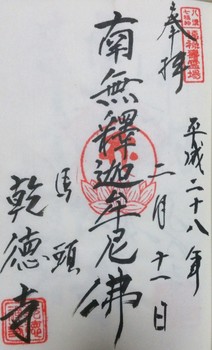 奉拝
平成二十八年
二月十一日
南無釋迦牟尼佛
馬頭
乾徳寺
八溝
七福神